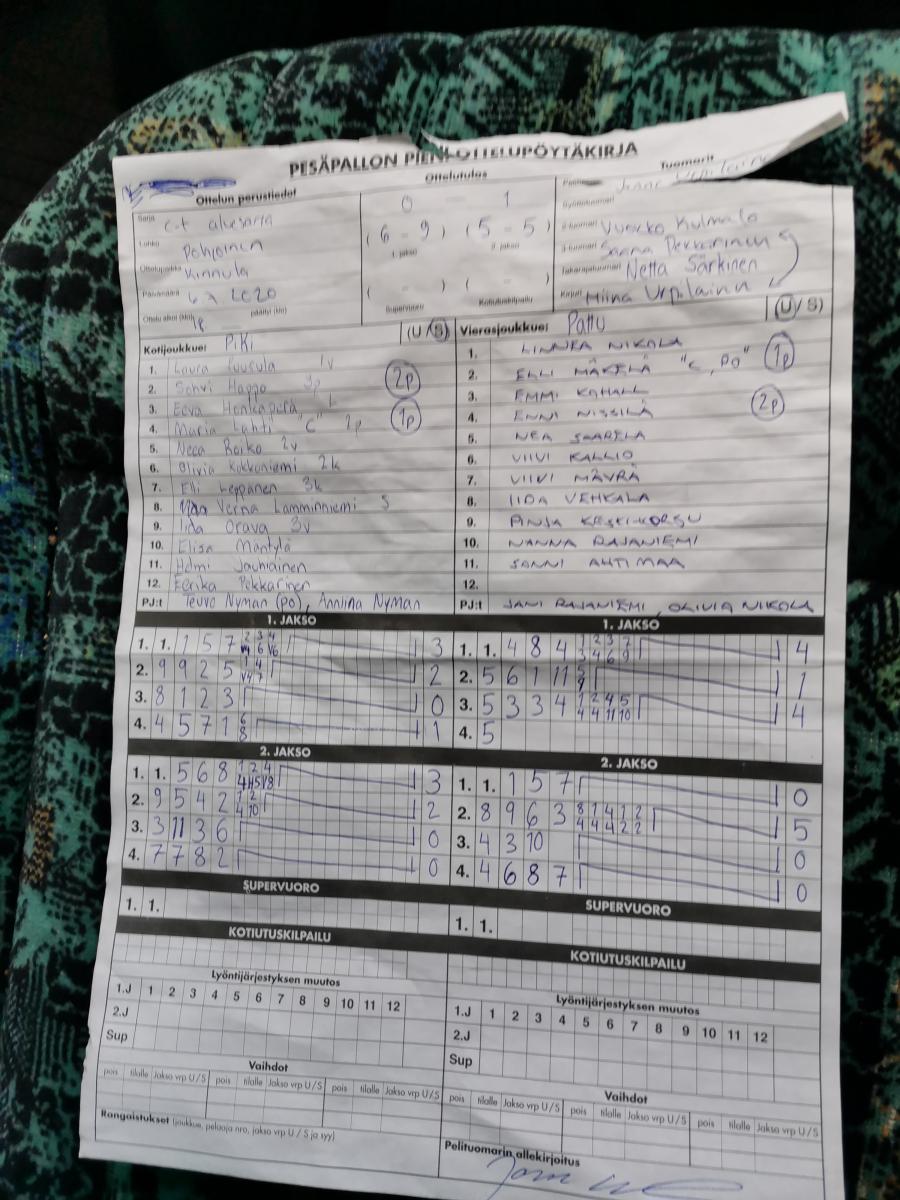 PESÄPALLON PIENI OTTELUPÖYTÄKIRJA
Ottelun perustiedot
Ottelutulos
Tuomarit
Sarja C-t aluesarja
Lohko Pohjoinen
Ottelupaikka Kinnula
Päivämäärä 2020
Ottelu alkoi (klo) 18 päättyi (klo)
0 - 1
(6 - 9) (5 - 5)
1. jakso 2. jakso
( - ) ( - )
Supervuoro Kotiutuskilpailu
Urpilainen
Syöttötuomari
2-tuomari Vuokko Kulmala
3-tuomari Saana Pekkarinen
Takarajatuomari Netta Särkinen
Kirjuri Miina Urpilainen
Kotijoukkue: PiKi (U/S)
1. Laura Puusula 1v
2. Sohvi Happo 3p 2p
3. Eeva Honkaperä L
4. Maria Lahti "C" 2p 1p
5. Neea Roiko 2v
6. Olivia Kokkoniemi 2k
7. Elli Leppänen 3k
8. Verna Lamminniemi S
9. Iida Orava 3v
10. Elisa Mäntylä
11. Helmi Jauhiainen
12. Eerika Pekkarinen
PJ:t Teuvo Nyman (po), Anniina Nyman
Vierasjoukkue: Pattu (U/S)
1. LINNEA NIKOLA
2. ELLI MÄKELÄ "C, PO" 1p
3. EMMI
4. ENNI NISSILÄ 2p
5. NEA SAARELA
6. VIIVI KALLIO
7. VIIVI MÄYRÄ
8. IIDA VEHKALA
9. PINJA KESKI-KORSU
10. NANNA RAJANIEMI
11. SANNI AHTIMAA
12.
PJ:t JANI RAJANIEMI, OLIVIA NIKOLA
1. JAKSO
1. 1. 1 5 7 3
2. 9 9 2 5 2
3. 8 1 2 3 0
4. 4 5 7 1 6 8 1
2. JAKSO
1. 1. 5 6 8 3
2. 9 5 4 2 2
3. 3 11 3 6 0
4. 7 7 8 2 0
SUPERVUORO
1. 1.
KOTIUTUSKILPAILU
Lyöntijärjestyksen muutos
1.J 1 2 3 4 5 6 7 8 9 10 11 12
2.J
Sup
Vaihdot
pois tilalle Jakso vrp U/S pois tilalle Jakso vrp U/S pois tilalle Jakso vrp U/S
Rangaistukset (joukkue, pelaaja nro, jakso vrp U/S ja syy)
1. JAKSO
1. 1. 4 8 4 4
2. 5 6 1 11 1
3. 5 3 3 4 1 2 4 5 4 4 11 10 4
4. 5
2. JAKSO
1. 1. 1 5 7 0
2. 8 9 6 3 8 1 4 1 2 4 4 4 2 2 5
3. 4 3 10 0
4. 4 6 8 7 0
SUPERVUORO
1. 1.
KOTIUTUSKILPAILU
Lyöntijärjestyksen muutos
1.J 1 2 3 4 5 6 7 8 9 10 11 12
2.J
Sup
Vaihdot
pois tilalle Jakso vrp U/S pois tilalle Jakso vrp U/S pois tilalle Jakso vrp U/S
Pelituomarin allekirjoitus